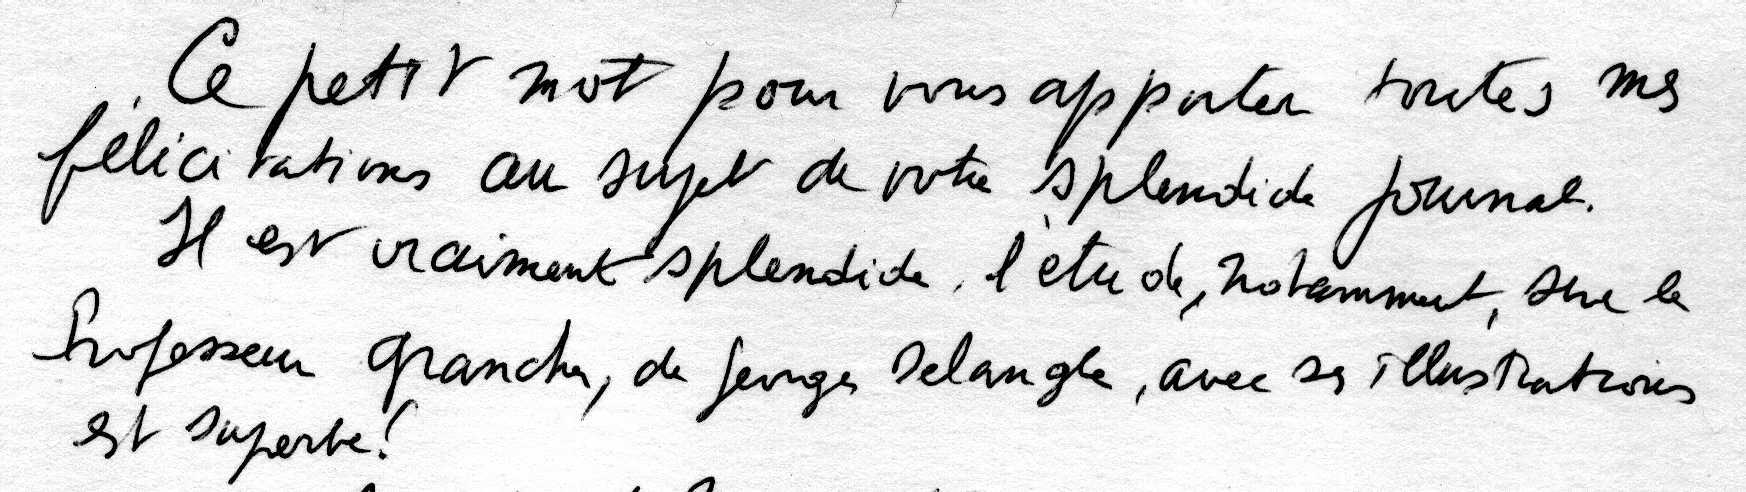 Ce petit mot pour vous apporter toutes mes
félicitations au sujet de votre splendide journal.
Il est vraiment splendide. l'étude, notamment, sur le
Professeur Grancher, de Georges Delangle, avec ses illustrations
est superbe!